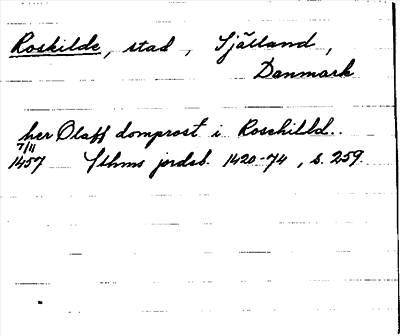 Roskilde, stad, Själland,
Danmark
her Olaff domprost i Roschilld..
7/11
1457 Sthms jordsb. 1420-74, s. 259.